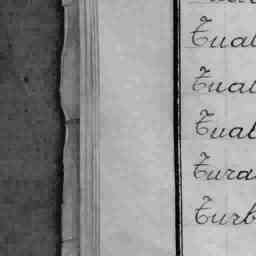 Tual
Tual
Tual
Tura
Turb